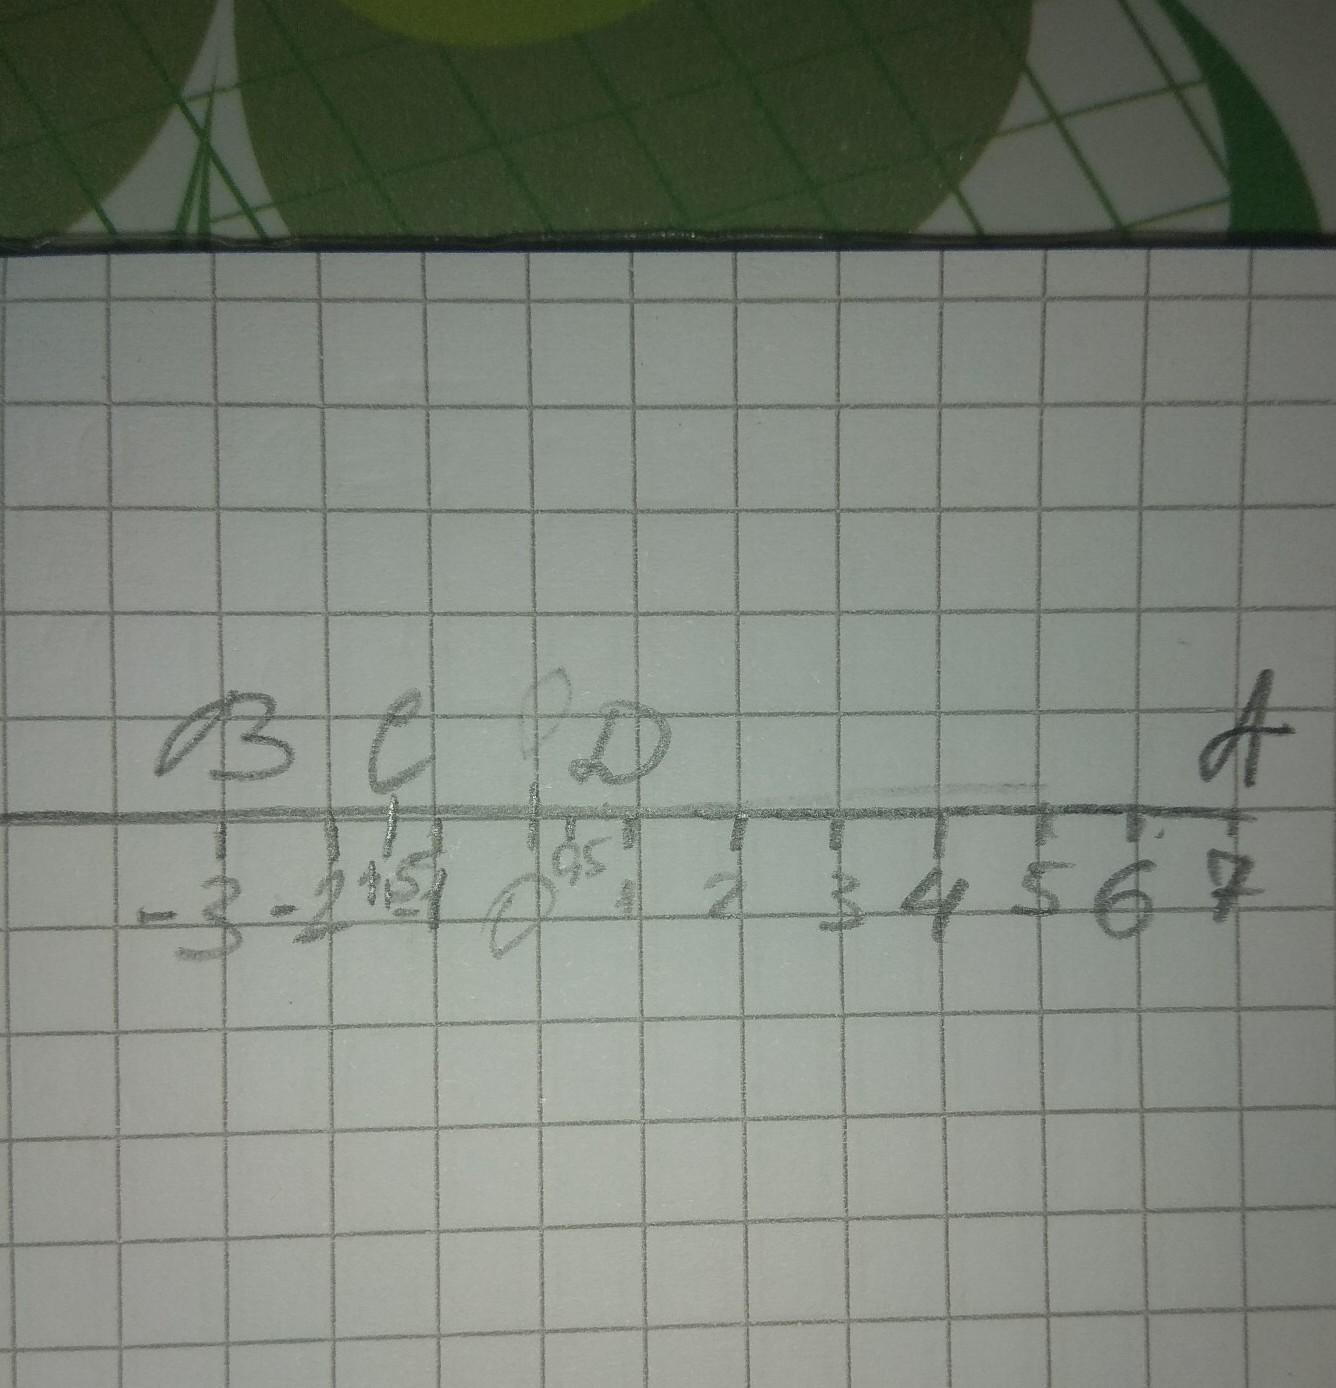 B C O D A
-3 -2 -1,5 -1 0 0,5 1 2 3 4 5 6 7